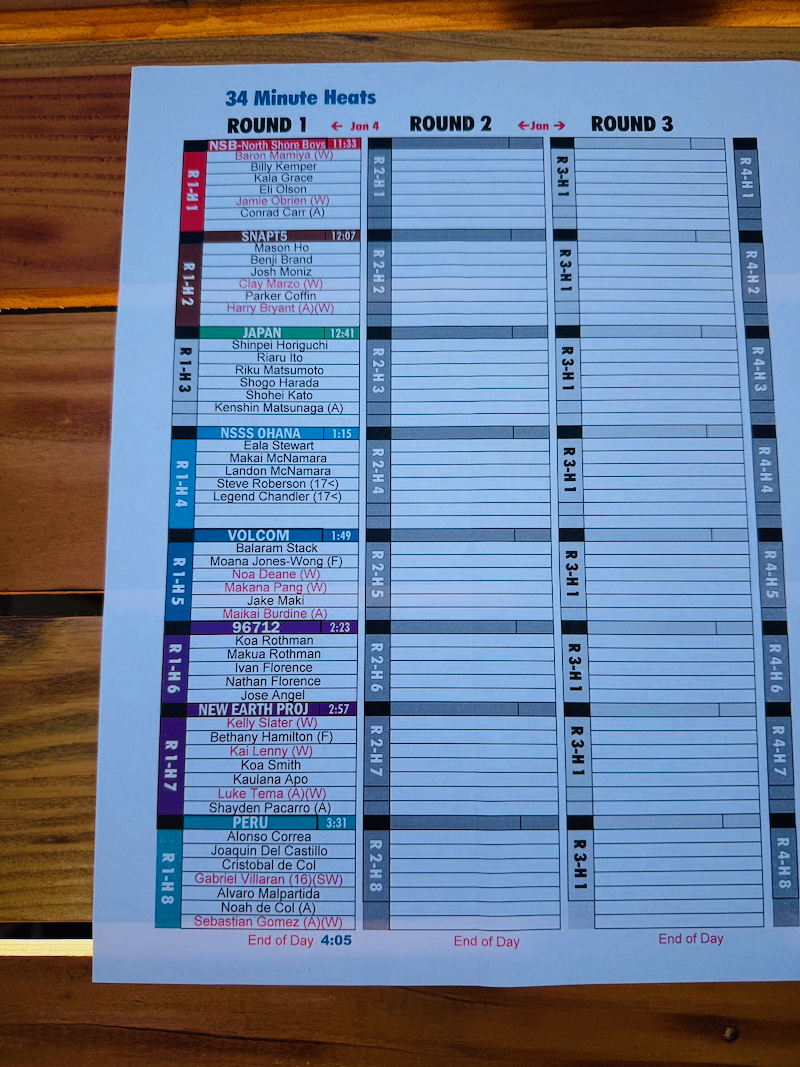 34 Minute Heats
ROUND 1 ← Jan 4 ROUND 2 ←Jan → ROUND 3
R 1-H 1
NSB-North Shore Boys 11:33
Baron Mamiya (W)
Billy Kemper
Kala Grace
Eli Olson
Jamie Obrien (W)
Conrad Carr (A)
R 1-H 2
SNAPT5 12:07
Mason Ho
Benji Brand
Josh Moniz
Clay Marzo (W)
Parker Coffin
Harry Bryant (A)(W)
R 1-H 3
JAPAN 12:41
Shinpei Horiguchi
Riaru Ito
Riku Matsumoto
Shogo Harada
Shohei Kato
Kenshin Matsunaga (A)
R 1-H 4
NSSS OHANA 1:15
Eala Stewart
Makai McNamara
Landon McNamara
Steve Roberson (17<)
Legend Chandler (17<)
R 1-H 5
VOLCOM 1:49
Balaram Stack
Moana Jones-Wong (F)
Noa Deane (W)
Makana Pang (W)
Jake Maki
Maikai Burdine (A)
R 1-H 6
96712 2:23
Koa Rothman
Makua Rothman
Ivan Florence
Nathan Florence
Jose Angel
R 1-H 7
NEW EARTH PROJ 2:57
Kelly Slater (W)
Bethany Hamilton (F)
Kai Lenny (W)
Koa Smith
Kaulana Apo
Luke Tema (A)(W)
Shayden Pacarro (A)
R 1-H 8
PERU 3:31
Alonso Correa
Joaquin Del Castillo
Cristobal de Col
Gabriel Villaran (16)(SW)
Alvaro Malpartida
Noah de Col (A)
Sebastian Gomez (A)(W)
End of Day 4:05
R 2-H 1
R 2-H 2
R 2-H 3
R 2-H 4
R 2-H 5
R 2-H 6
R 2-H 7
R 2-H 8
End of Day
R 3-H 1
R 3-H 1
R 3-H 1
R 3-H 1
R 3-H 1
R 3-H 1
R 3-H 1
R 3-H 1
End of Day
R 4-H 1
R 4-H 2
R 4-H 3
R 4-H 4
R 4-H 5
R 4-H 6
R 4-H 7
R 4-H 8